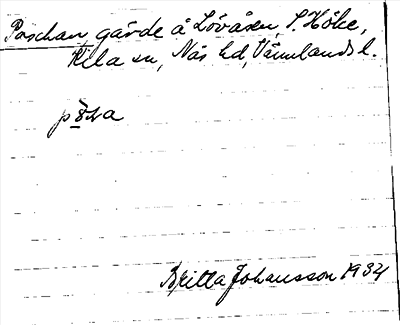 Poschan, gärde å Lövåsen, S. Höke,
Kila sn, Näs hd, Värmlands l.
pöska
Britta Johansson 1934